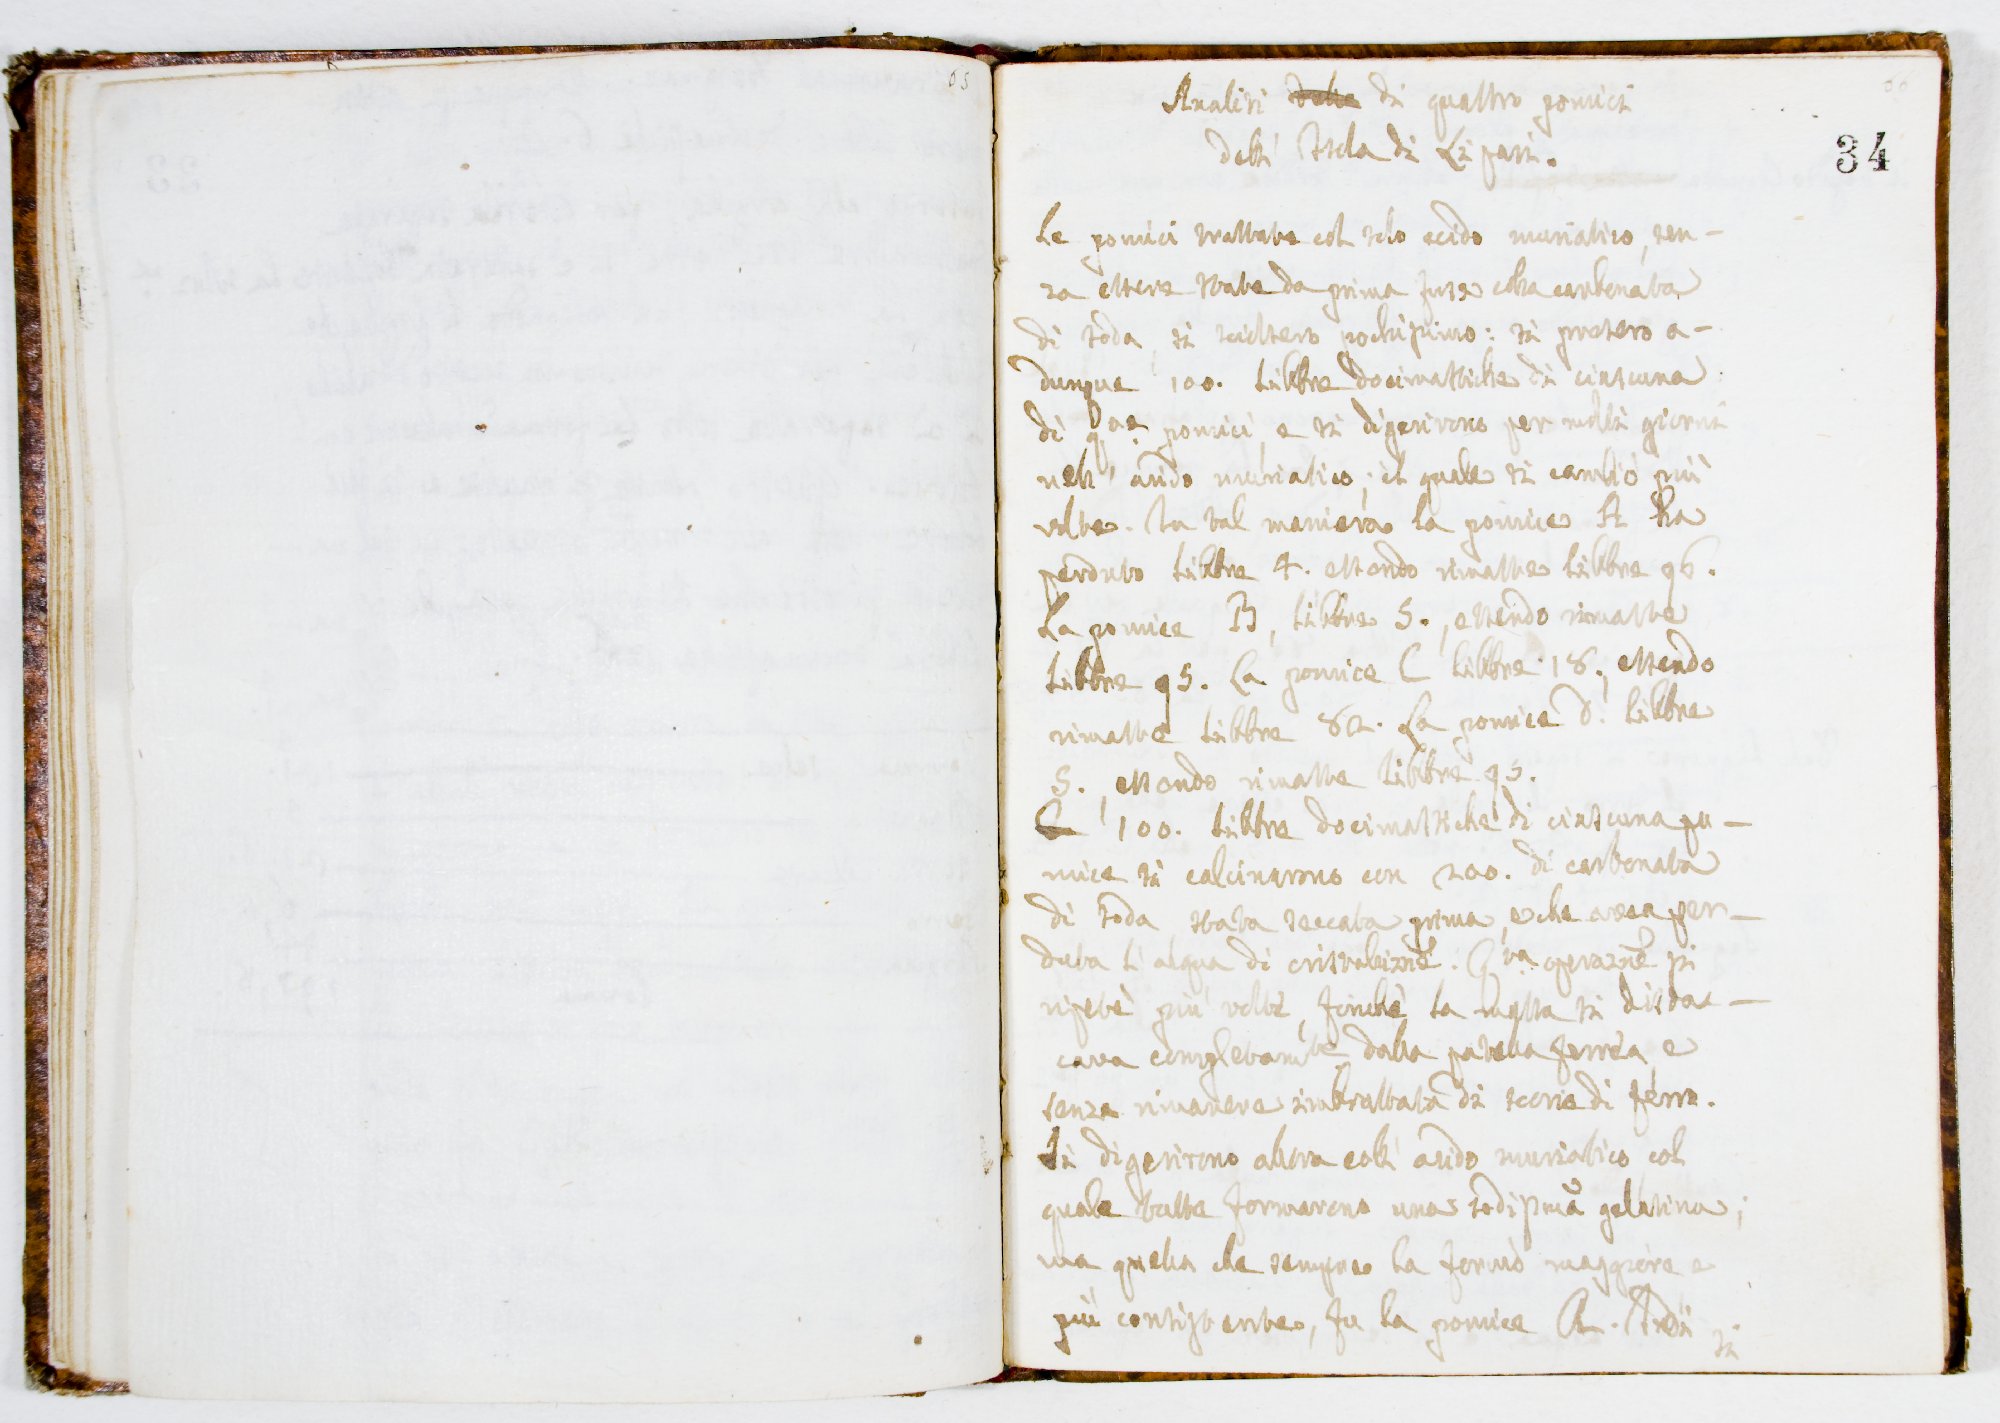 65
66
34
Analisi delle di quattro pomici
dell' Isola di Lipari.
Le pomici trattate col solo acido muriatico, sen-
za essere state da prima fuse colla carbonata
di soda, si sciolsero pochissimo: si presero a-
dunque 100. libbre docimastiche di ciascuna
di qe. pomici, e si digerirono per molti giorni
nell' acido muriatico; il quale si cambiò più
volte. In tal maniera la pomice A ha
perduto libbre 4. essendo rimaste libbre 96.
La pomice B, libbre 5., essendo rimaste
libbre 95. La pomice C libbre 18., essendo
rimaste libbre 82. La pomice D. libbre
5., essendo rimaste libbre 95.
100. libbre docimastiche di ciascuna pu-
mice si calcinarono con 200. di carbonata
di soda stata seccata prima, e che avea per-
duta l' acqua di cristalizne. Qta. operazne si
ripetè più volte, finchè la massa si distac-
cava completamte. dalla padella ferrea, e
senza rimanere imbrattata di scorie di ferro.
Si digerirono allora coll' acido muriatico, col
quale tutte formarono una sodissima gelatina;
ma quella che sempre la formò maggiore e
più consistente, fu la pomice A. Indi
si